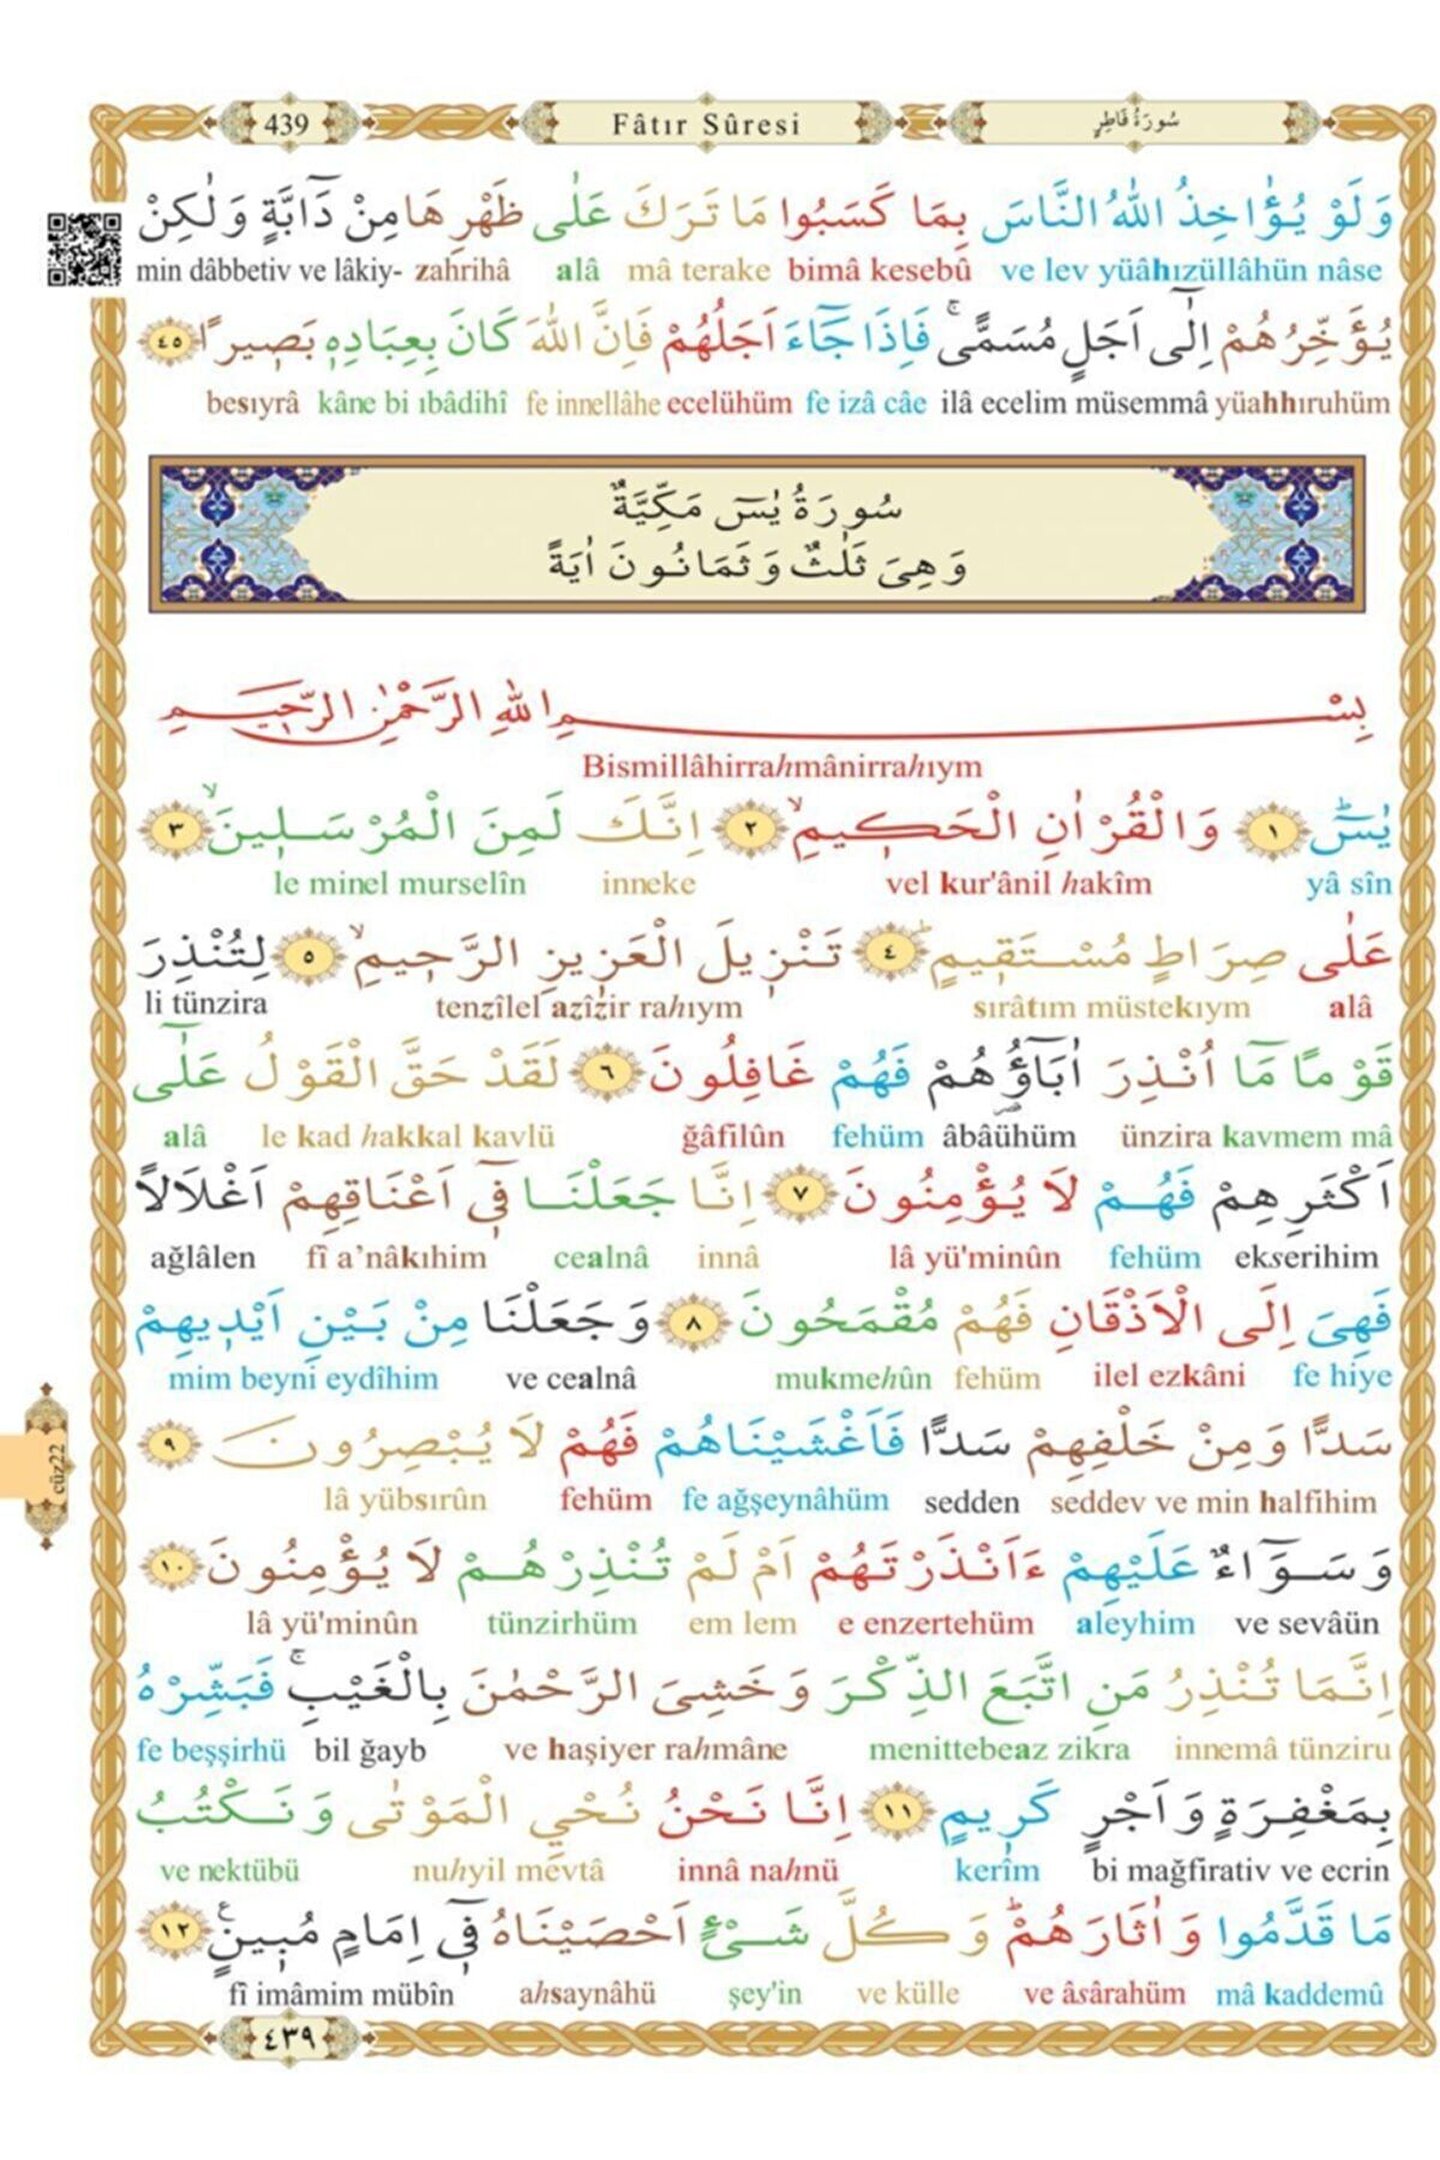 439 Fâtır Sûresi سُورَةُ فَاطِرٍ
وَلَوْ يُؤَاخِذُ اللّٰهُ النَّاسَ بِمَا كَسَبُوا مَا تَرَكَ عَلٰى ظَهْرِهَا مِنْ دَٓابَّةٍ وَلٰكِنْ
min dâbbetiv ve lâkiy- zahrihâ alâ mâ terake bimâ kesebû ve lev yüâhızüllâhün nâse
يُؤَخِّرُهُمْ اِلٰٓى اَجَلٍ مُسَمًّىۚ فَاِذَا جَٓاءَ اَجَلُهُمْ فَاِنَّ اللّٰهَ كَانَ بِعِبَادِهٖ بَصٖيرًا ٤٥
besıyrâ kâne bi ıbâdihî fe innellâhe ecelühüm fe izâ câe ilâ ecelim müsemmâ yüahhıruhüm
سُورَةُ يٰسٓ مَكِّيَّةٌ
وَهِىَ ثَلٰثٌ وَثَمَانُونَ اٰيَةً
بِسْمِ اللّٰهِ الرَّحْمٰنِ الرَّحٖيمِ
Bismillâhirrahmânirrahıym
يٰسٓۜ ١ وَالْقُرْاٰنِ الْحَكٖيمِۙ ٢ اِنَّكَ لَمِنَ الْمُرْسَلٖينَۙ ٣
le minel murselîn inneke vel kur'ânil hakîm yâ sîn
عَلٰى صِرَاطٍ مُسْتَقٖيمٍۜ ٤ تَنْزٖيلَ الْعَزٖيزِ الرَّحٖيمِۙ ٥ لِتُنْذِرَ
li tünzira tenzîlel azîzir rahıym sırâtım müstekıym alâ
قَوْمًا مَٓا اُنْذِرَ اٰبَٓاؤُهُمْ فَهُمْ غَافِلُونَ ٦ لَقَدْ حَقَّ الْقَوْلُ عَلٰٓى
alâ le kad hakkal kavlü ğâfilûn fehüm âbâühüm ünzira kavmem mâ
اَكْثَرِهِمْ فَهُمْ لَا يُؤْمِنُونَ ٧ اِنَّا جَعَلْنَا فٖٓى اَعْنَاقِهِمْ اَغْلَالًا
ağlâlen fî a'nâkıhim cealnâ innâ lâ yü'minûn fehüm ekserihim
فَهِىَ اِلَى الْاَذْقَانِ فَهُمْ مُقْمَحُونَ ٨ وَجَعَلْنَا مِنْ بَيْنِ اَيْدٖيهِمْ
mim beyni eydîhim ve cealnâ mukmehûn fehüm ilel ezkâni fe hiye
سَدًّا وَمِنْ خَلْفِهِمْ سَدًّا فَاَغْشَيْنَاهُمْ فَهُمْ لَا يُبْصِرُونَ ٩
lâ yübsırûn fehüm fe ağşeynâhüm sedden seddev ve min halfihim
cüz22
وَسَوَٓاءٌ عَلَيْهِمْ ءَاَنْذَرْتَهُمْ اَمْ لَمْ تُنْذِرْهُمْ لَا يُؤْمِنُونَ ١٠
lâ yü'minûn tünzirhüm em lem e enzertehüm aleyhim ve sevâün
اِنَّمَا تُنْذِرُ مَنِ اتَّبَعَ الذِّكْرَ وَخَشِىَ الرَّحْمٰنَ بِالْغَيْبِۚ فَبَشِّرْهُ
fe beşşirhü bil ğayb ve haşiyer rahmâne menittebeaz zikra innemâ tünziru
بِمَغْفِرَةٍ وَاَجْرٍ كَرٖيمٍ ١١ اِنَّا نَحْنُ نُحْيِ الْمَوْتٰى وَنَكْتُبُ
ve nektübü nuhyil mevtâ innâ nahnü kerîm bi mağfirativ ve ecrin
مَا قَدَّمُوا وَاٰثَارَهُمْۜ وَكُلَّ شَىْءٍ اَحْصَيْنَاهُ فٖٓى اِمَامٍ مُبٖينٍ ع ١٢
fî imâmim mübîn ahsaynâhü şey'in ve külle ve âsârahüm mâ kaddemû
٤٣٩